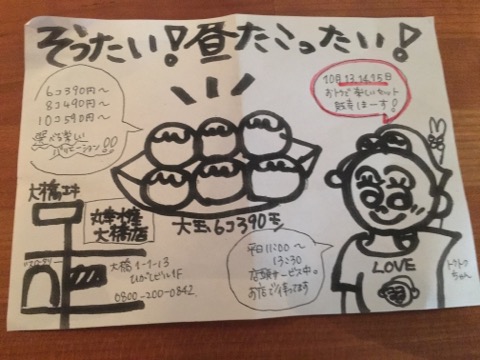 そうたい!昼たこったい!
6コ390円〜
8コ490円〜
10コ590円〜
選べる楽しい
バリエーション!!
10月13.14.15日
おトクで楽しいセット
販売しまーす!
大橋エキ
丸幸水産
大橋店
大玉6コ390円
大橋1-1-13
ひがしビル1F
0800-200-0842
平日11:00〜
13:30
店頭サービス中。
お店で待ってます
LOVE
ちゃん